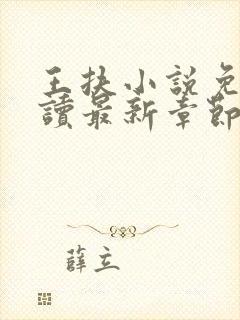 王扶小說免
讀最新章節
薛立